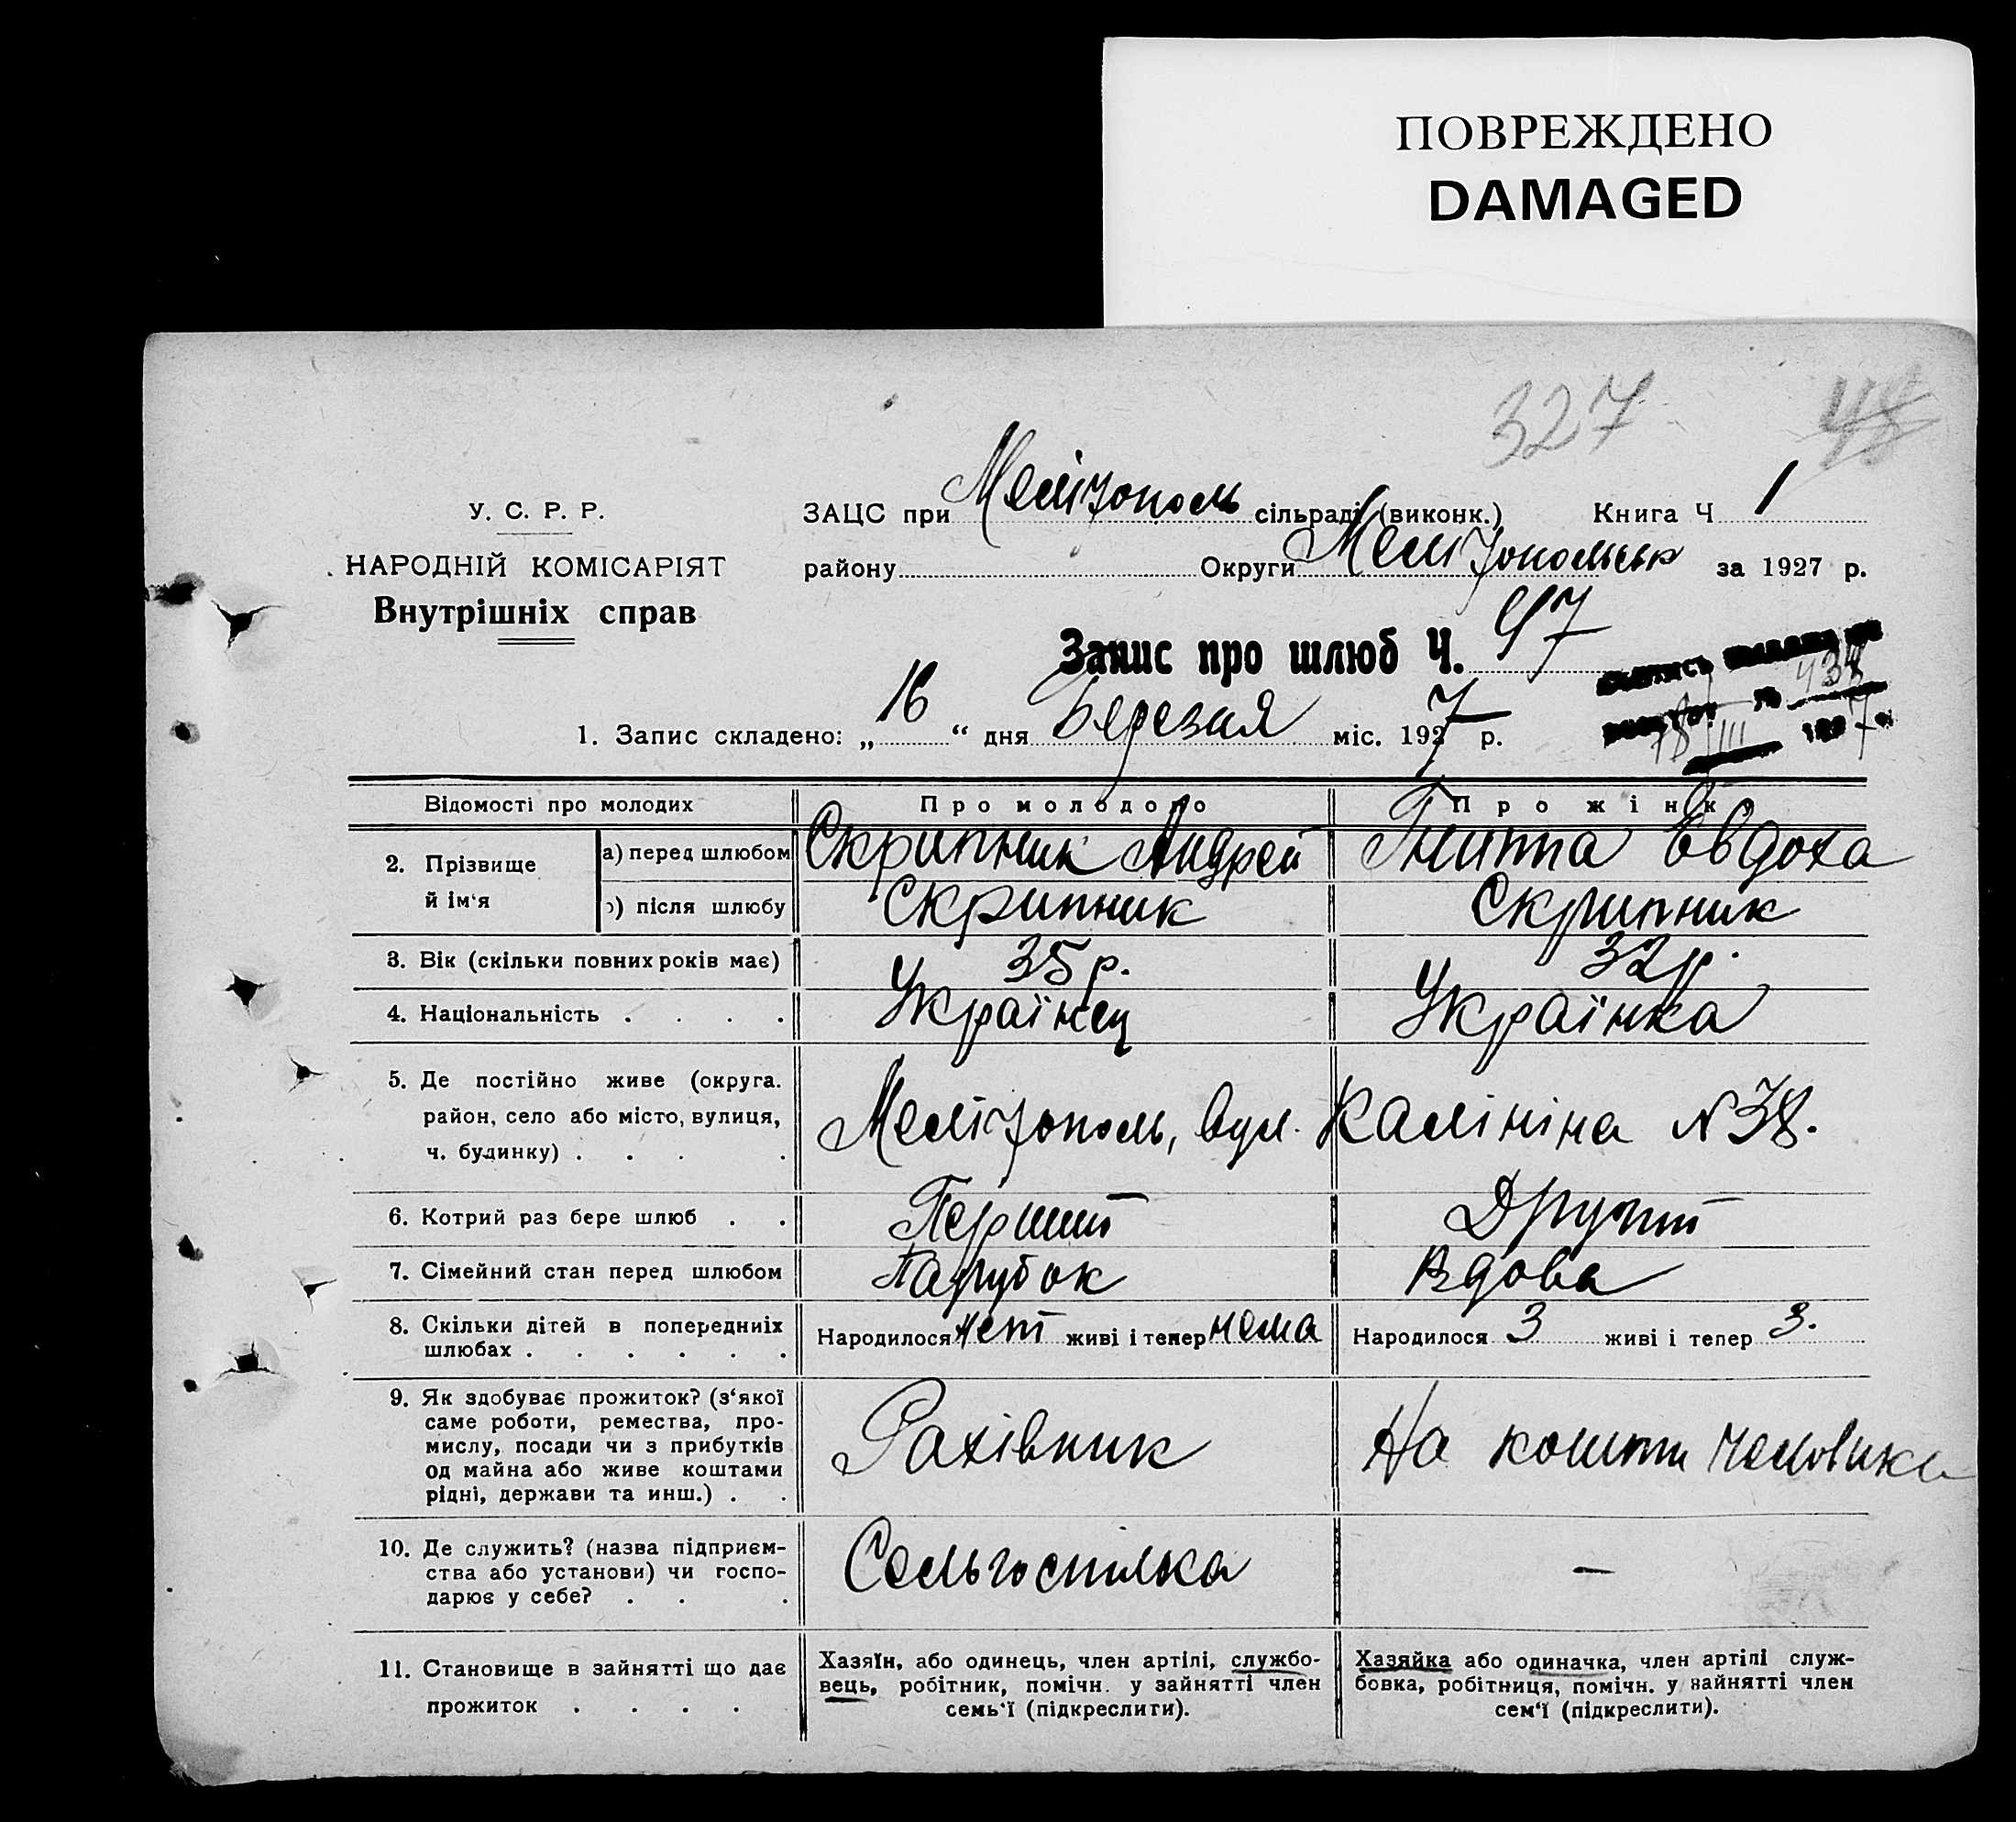 ПОВРЕЖДЕНО
DAMAGED
327 48
У. С. Р. Р.
НАРОДНІЙ КОМІСАРІЯТ
Внутрішніх справ
ЗАЦС при Мелітополь сільраді (виконк.) Книга Ч 1
району Округи Мелітопольськ за 1927 р.
Запис про шлюб Ч. 97
1. Запис складено: „ 16 “ дня Березня міс. 1927 р.
Відомості про молодих Про молодого Про жінку
2. Прізвище й ім‘я а) перед шлюбом Скрипник Андрей Евдоха
після шлюбу Скрипник Скрипник
3. Вік (скільки повних років має) 35 р. 32 р.
4. Національність . . . . Українец Українка
5. Де постійно живе (округа.
район, село або місто, вулиця,
ч. будинку) . . . .
Мелітополь, вул. Калініна N 38.
6. Котрий раз бере шлюб . . Перший Другий
7. Сімейний стан перед шлюбом Парубок Вдова
8. Скільки дітей в попередниіх
шлюбах . . . . . .
Народилося нет живі і тепер нема Народилося 3 живі і тепер 3.
9. Як здобуває прожиток? (з‘якої
саме роботи, ремества, про-
мислу, посади чи з прибутків
од майна або живе коштами
рідні, держави та инш.) . .
Рахівник На кошти человика
10. Де служить? (назва підприєм-
ства або установи) чи госпо-
дарює у себе? . . .
Сельгоспилка —
11. Становище в зайнятті що дає
прожиток . . . .
Хазяїн, або одинець, член артілі, службо-
вець, робітник, помічн. у зайнятті член
семь‘ї (підкреслити).
Хазяйка або одиначка, член артілі служ-
бовка, робітниця, помічн. у зайнятті член
сем‘ї (підкреслити).